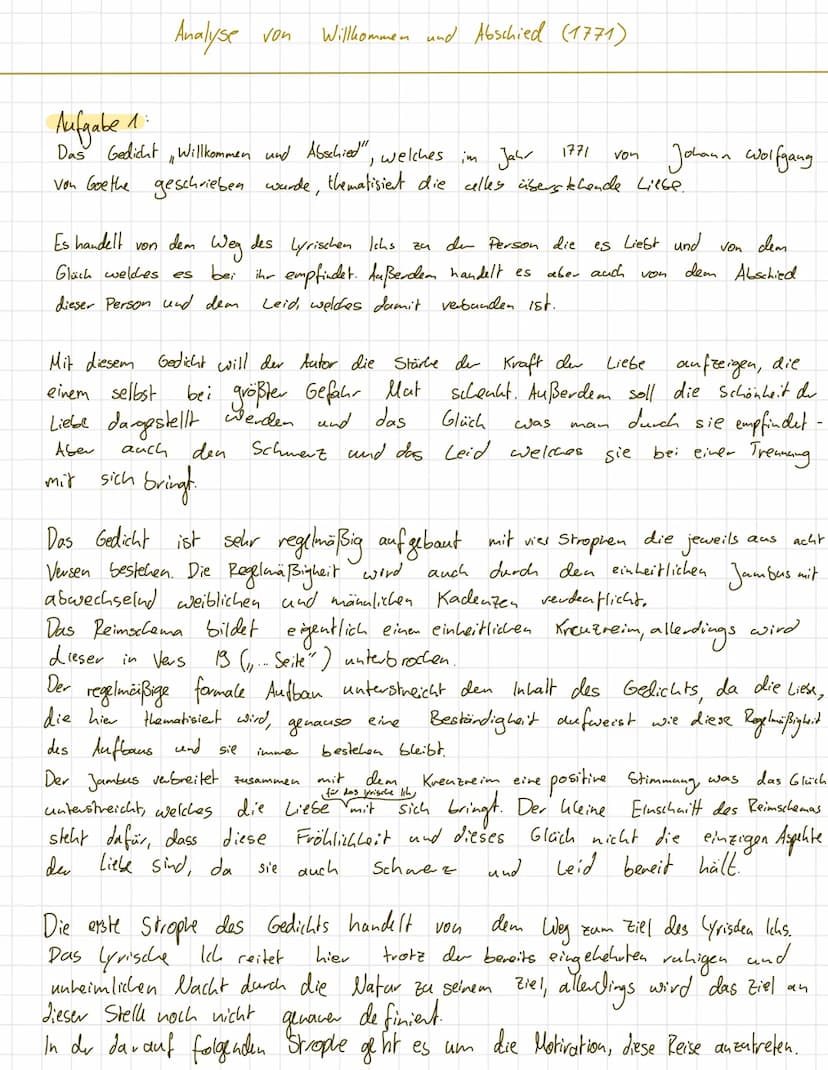 Analyse von Willkommen und Abschied (1771)
Aufgabe 1:
Das Gedicht „Willkommen und Abschied", welches im Jahr 1771 von Johann Wolfgang
von Goethe geschrieben wurde, thematisiert die alles überstehende Liebe.
Es handelt von dem Weg des Lyrischen Ichs zu der Person die es Liebt und von dem
Glück welches es bei ihr empfindet. Außerdem handelt es aber auch von dem Abschied
dieser Person und dem Leid, welches damit verbunden ist.
Mit diesem Gedicht will der Autor die Stärke der Kraft der Liebe aufzeigen, die
einem selbst bei größter Gefahr Mut schenkt. Außerdem soll die Schönheit der
Liebe dargestellt werden und das Glück was man durch sie empfindet -
Aber auch den Schmerz und das Leid welches sie bei einer Trennung
mit sich bringt.
Das Gedicht ist sehr regelmäßig aufgebaut mit vier Strophen die jeweils aus acht
Versen bestehen. Die Regelmäßigkeit wird auch durch den einheitlichen Jambus mit
abwechselnd weiblichen und männlichen Kadenzen verdeutlicht.
Das Reimschema bildet eigentlich einen einheitlichen Kreuzreim, allerdings wird
dieser in Vers 19 („... Seite") unterbrochen.
Der regelmäßige formale Aufbau unterstreicht den Inhalt des Gedichts, da die Liebe,
die hier thematisiert wird, genauso eine Beständigkeit aufweist wie diese Regelmäßigkeit
des Aufbaus und sie immer bestehen bleibt.
Der Jambus verbreitet zusammen mit dem Kreuzreim eine positive Stimmung, was das Glück
für das lyrische Ich
unterstreicht, welches die Liebe mit sich bringt. Der kleine Einschnitt des Reimschemas
steht dafür, dass diese Fröhlichkeit und dieses Glück nicht die einzigen Aspekte
der Liebe sind, da sie auch Schmerz und Leid bereit hält.
Die erste Strophe des Gedichts handelt von dem Weg zum Ziel des Lyrischen Ichs.
Das Lyrische Ich reitet hier trotz der bereits eingekehrten ruhigen und
unheimlichen Nacht durch die Natur zu seinem Ziel, allerdings wird das Ziel an
dieser Stelle noch nicht genauer definiert.
In der darauf folgenden Strophe geht es um die Motivation, diese Reise anzutreten.